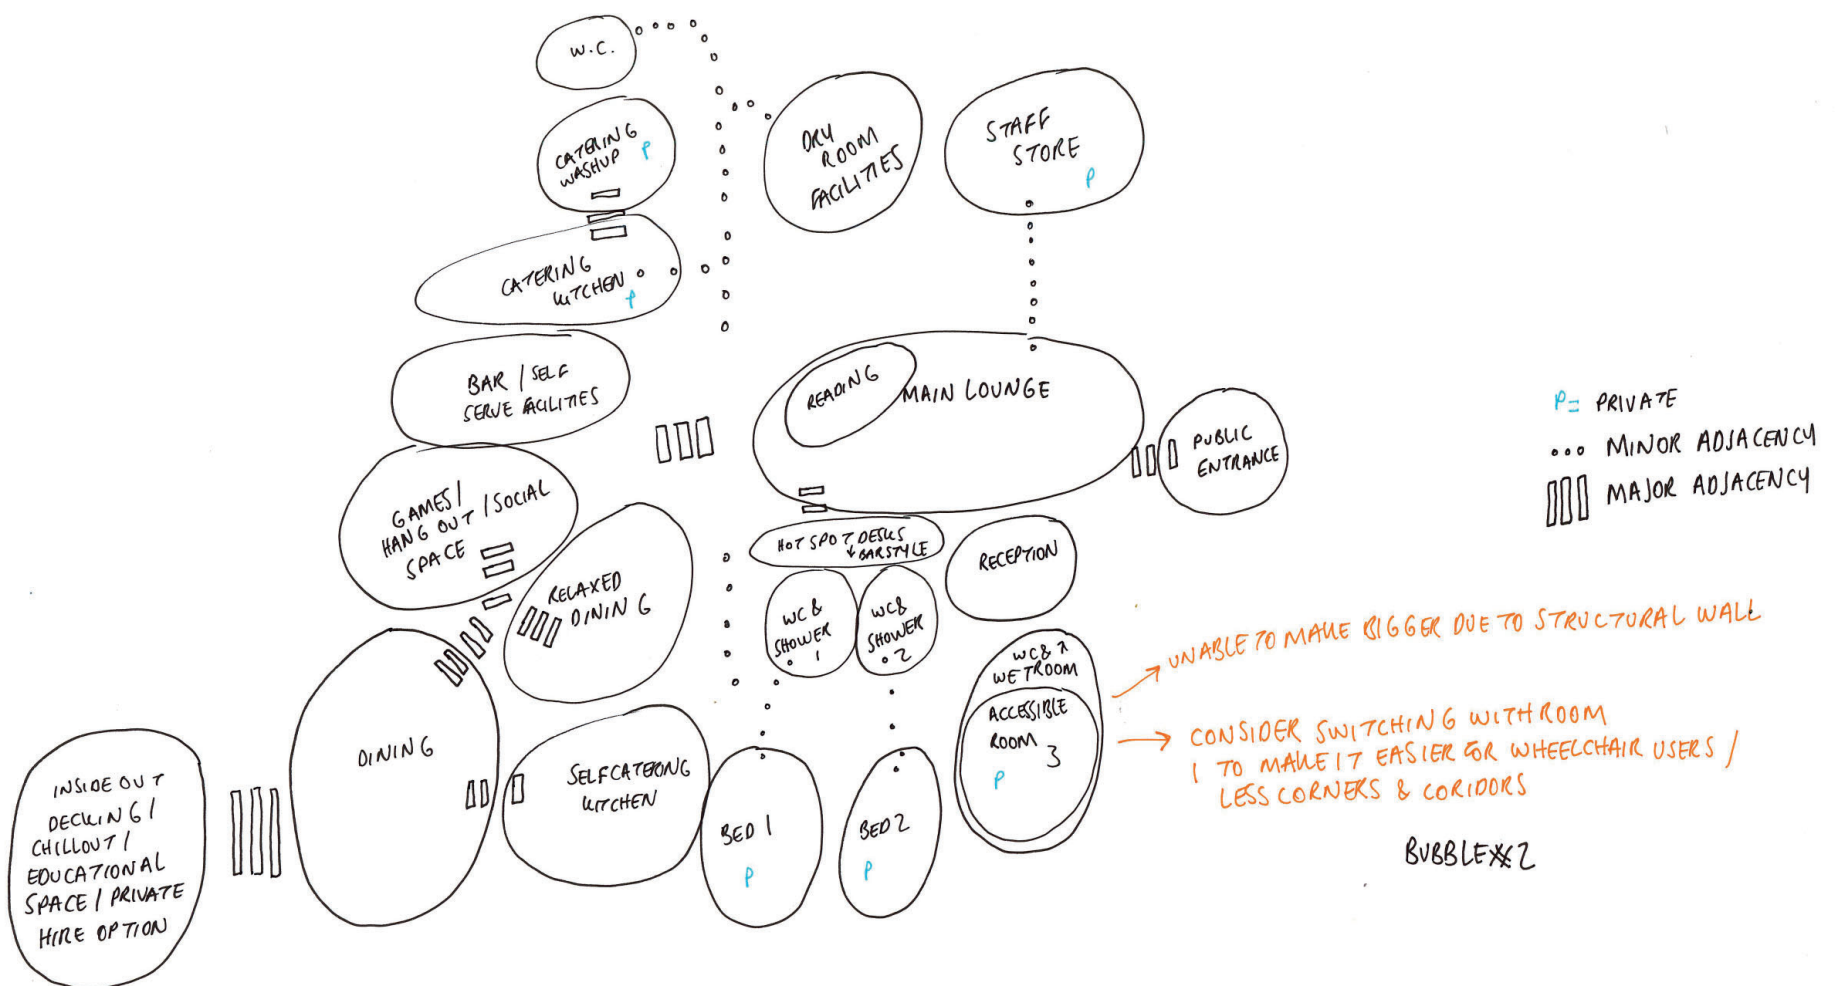 W.C.
CATERING
WASHUP P
DRY
ROOM
FACILITIES
STAFF
STORE
P
CATERING
KITCHEN
P
BAR / SELF
SERVE FACILITIES
READING
MAIN LOUNGE
PUBLIC
ENTRANCE
P= PRIVATE
... MINOR ADJACENCY
MAJOR ADJACENCY
GAMES /
HANG OUT / SOCIAL
SPACE
HOT SPOT DESKS
BARSTYLE
RECEPTION
RELAXED
DINING
WC &
SHOWER
1
WC&
SHOWER
2
WC &
WETROOM
ACCESSIBLE
ROOM 3
P
UNABLE TO MAKE BIGGER DUE TO STRUCTURAL WALL
CONSIDER SWITCHING WITH ROOM
1 TO MAKE IT EASIER FOR WHEELCHAIR USERS /
LESS CORNERS & CORIDORS
DINING
SELFCATERING
KITCHEN
BED 1
P
BED 2
P
INSIDE OUT
DECKING /
CHILLOUT /
EDUCATIONAL
SPACE / PRIVATE
HIRE OPTION
BUBBLE #2